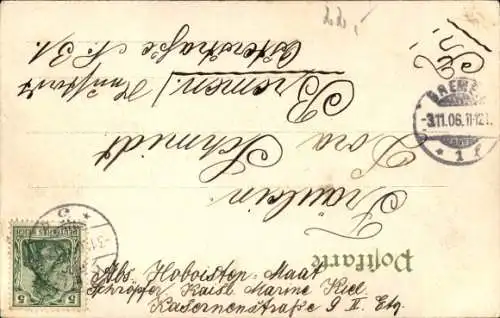 Postkarte
Fräulein
Dora
Schmidt
Bremen.
Osterstraße No. 31.
BREMEN
-3.11.06.11-12
* 1 f
DEUTSCHES REICH
5 5
Abs. Hoboisten-Maat
Schröpfer Kaisl. Marine Kiel
Kasernenstraße 9 II. Etg.